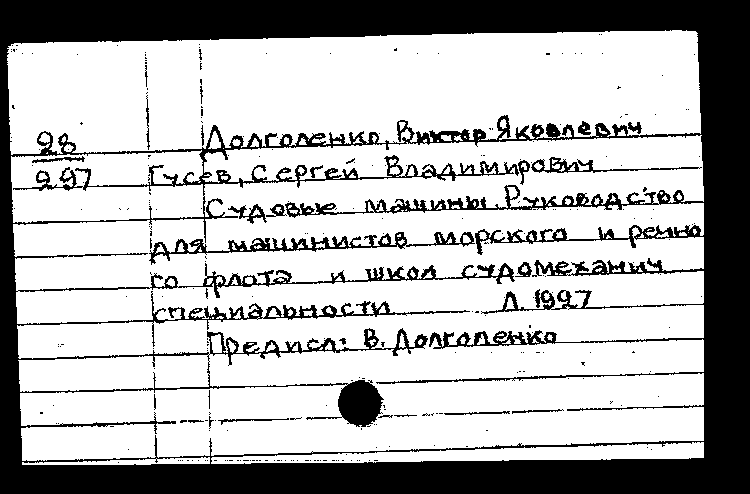 28 Долголенко, Виктор Яковлевич
297 Гусев, Сергей Владимирович
Судовые машины. Руководство
для машинистов морского и речно
го флота и школ судомеханич
специальности Л. 1927
Предисл: В. Долголенко